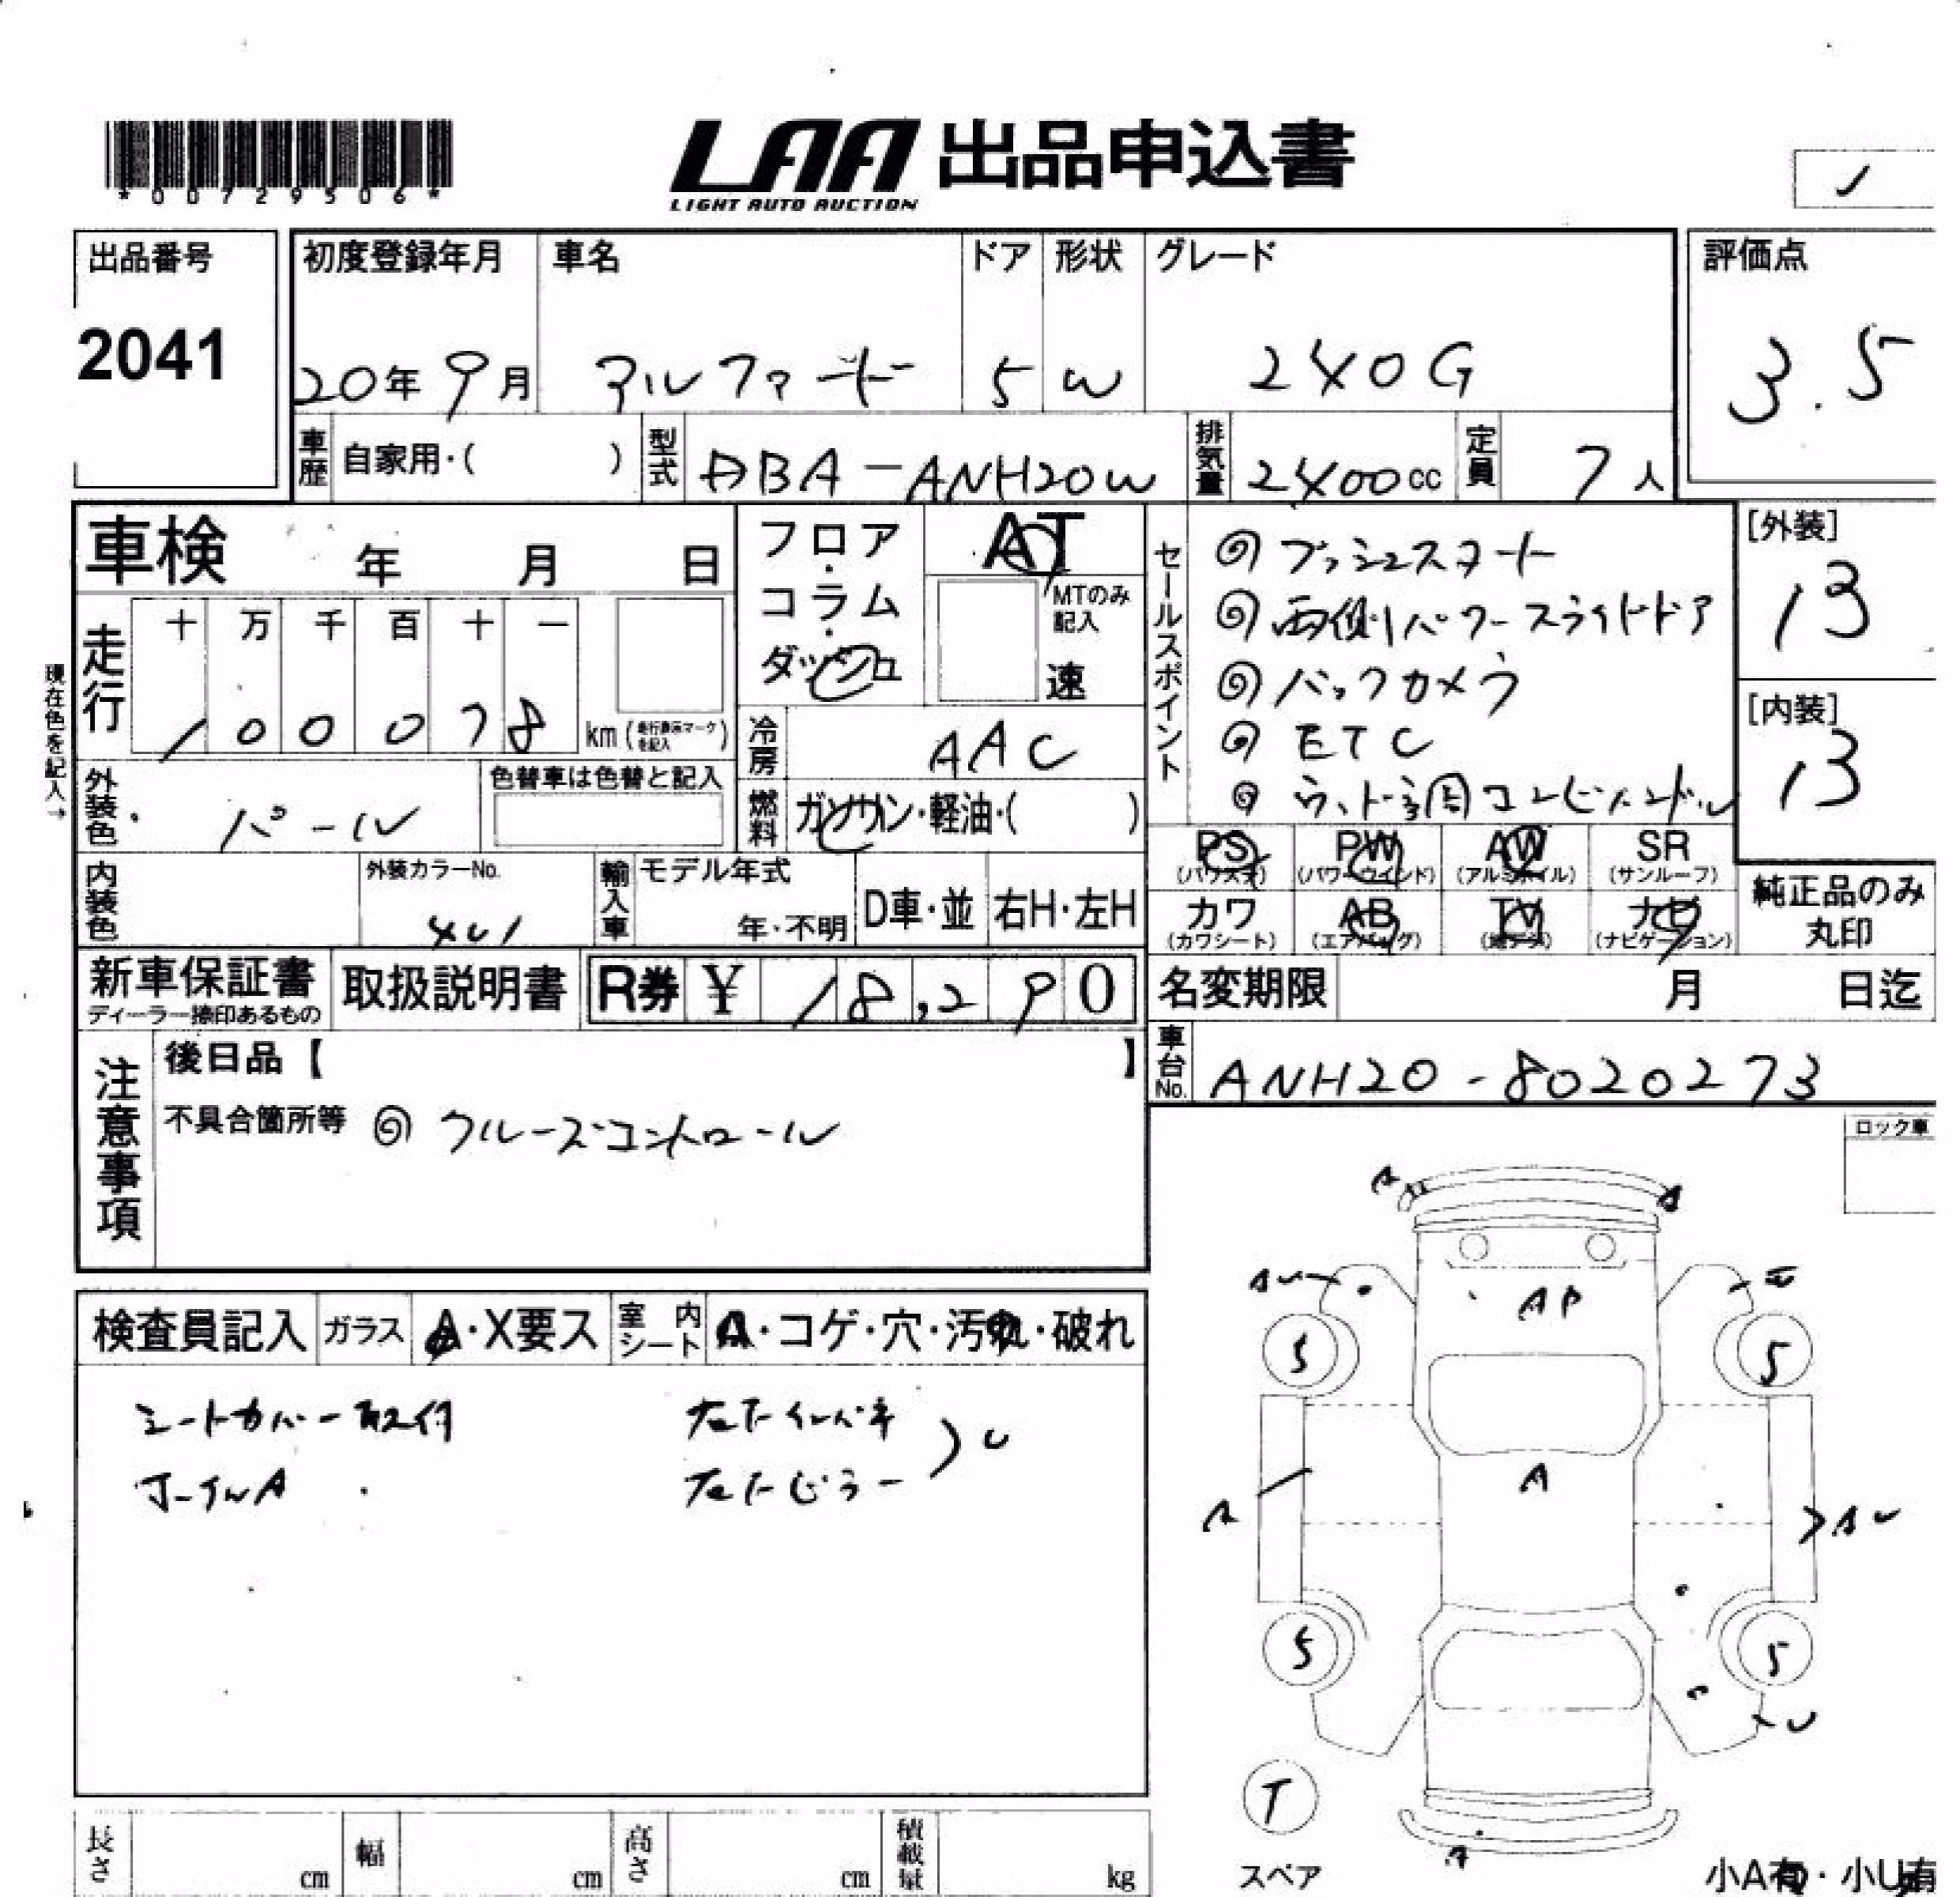 *00729506*
LAA 出品申込書
LIGHT AUTO AUCTION
出品番号
2041
初度登録年月
20年9月
車名
アルファード
ドア
5
形状
W
グレード
240G
評価点
3.5
車歴 自家用・( )
型式 DBA-ANH20W
排気量 2400cc
定員 7人
車検 年 月 日
走行
十 万 千 百 十 一
1 0 0 0 7 8
km (走行表示マークを記入)
現在色を記入→
フロア・コラム・ダッシュ
AT
MTのみ記入
速
冷房 AAC
燃料 ガソリン・軽油・( )
セールスポイント
◎プッシュスタート
◎両側パワースライドドア
◎バックカメラ
◎ETC
◎ウッド調コンビハンドル
[外装]
13
[内装]
13
外装色 パール
色替車は色替と記入
内装色
外装カラーNo.
輸入車
モデル年式
年・不明
D車・並
右H・左H
PS
(パワステ)
PW
(パワーウインド)
AW
(アルミホイル)
SR
(サンルーフ)
カワ
(カワシート)
AB
(エアバッグ)
TV
(地デジ)
ナビ
(ナビゲーション)
純正品のみ
丸印
新車保証書
ディーラー捺印あるもの
取扱説明書
R券 ¥ 18,290
名変期限 月 日迄
車台No. ANH20-8020273
注意事項
後日品【 】
不具合箇所等 ◎クルーズコントロール
ロック車
検査員記入
ガラス A・X要ス
室内シート A・コゲ・穴・汚れ・破れ
シートカバー取付
ホイルA
A
A
AU
AP
S
5
A
A
AU
S
5
U
T
スペア
A
小A有・小U有
長さ cm
幅 cm
高さ cm
積載量 kg